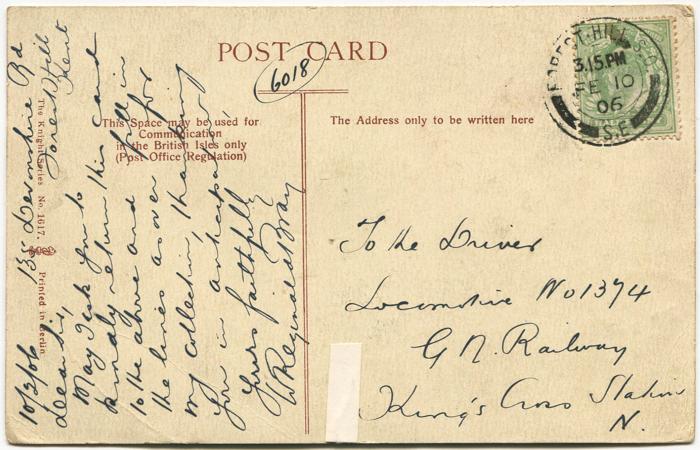 POST CARD
6018
The Knight Series No. 1617.
Printed in Berlin.
This Space may be used for
Communication
in the British Isles only
(Post Office Regulation)
The Address only to be written here
FOREST-HILL S.O.
3.15 PM
FE 10
06
S.E
135 Devonshire Rd
Forest Hill
Kent
10/2/06
Dear Sir,
May I ask you to
kindly return this card
to the above and fill in
the lines as over for
my collection, thanking
you in anticipation
Yours faithfully
W Reginald Bray
To the Driver
Locomotive No 1374
G N. Railway
King's Cross Station
N.